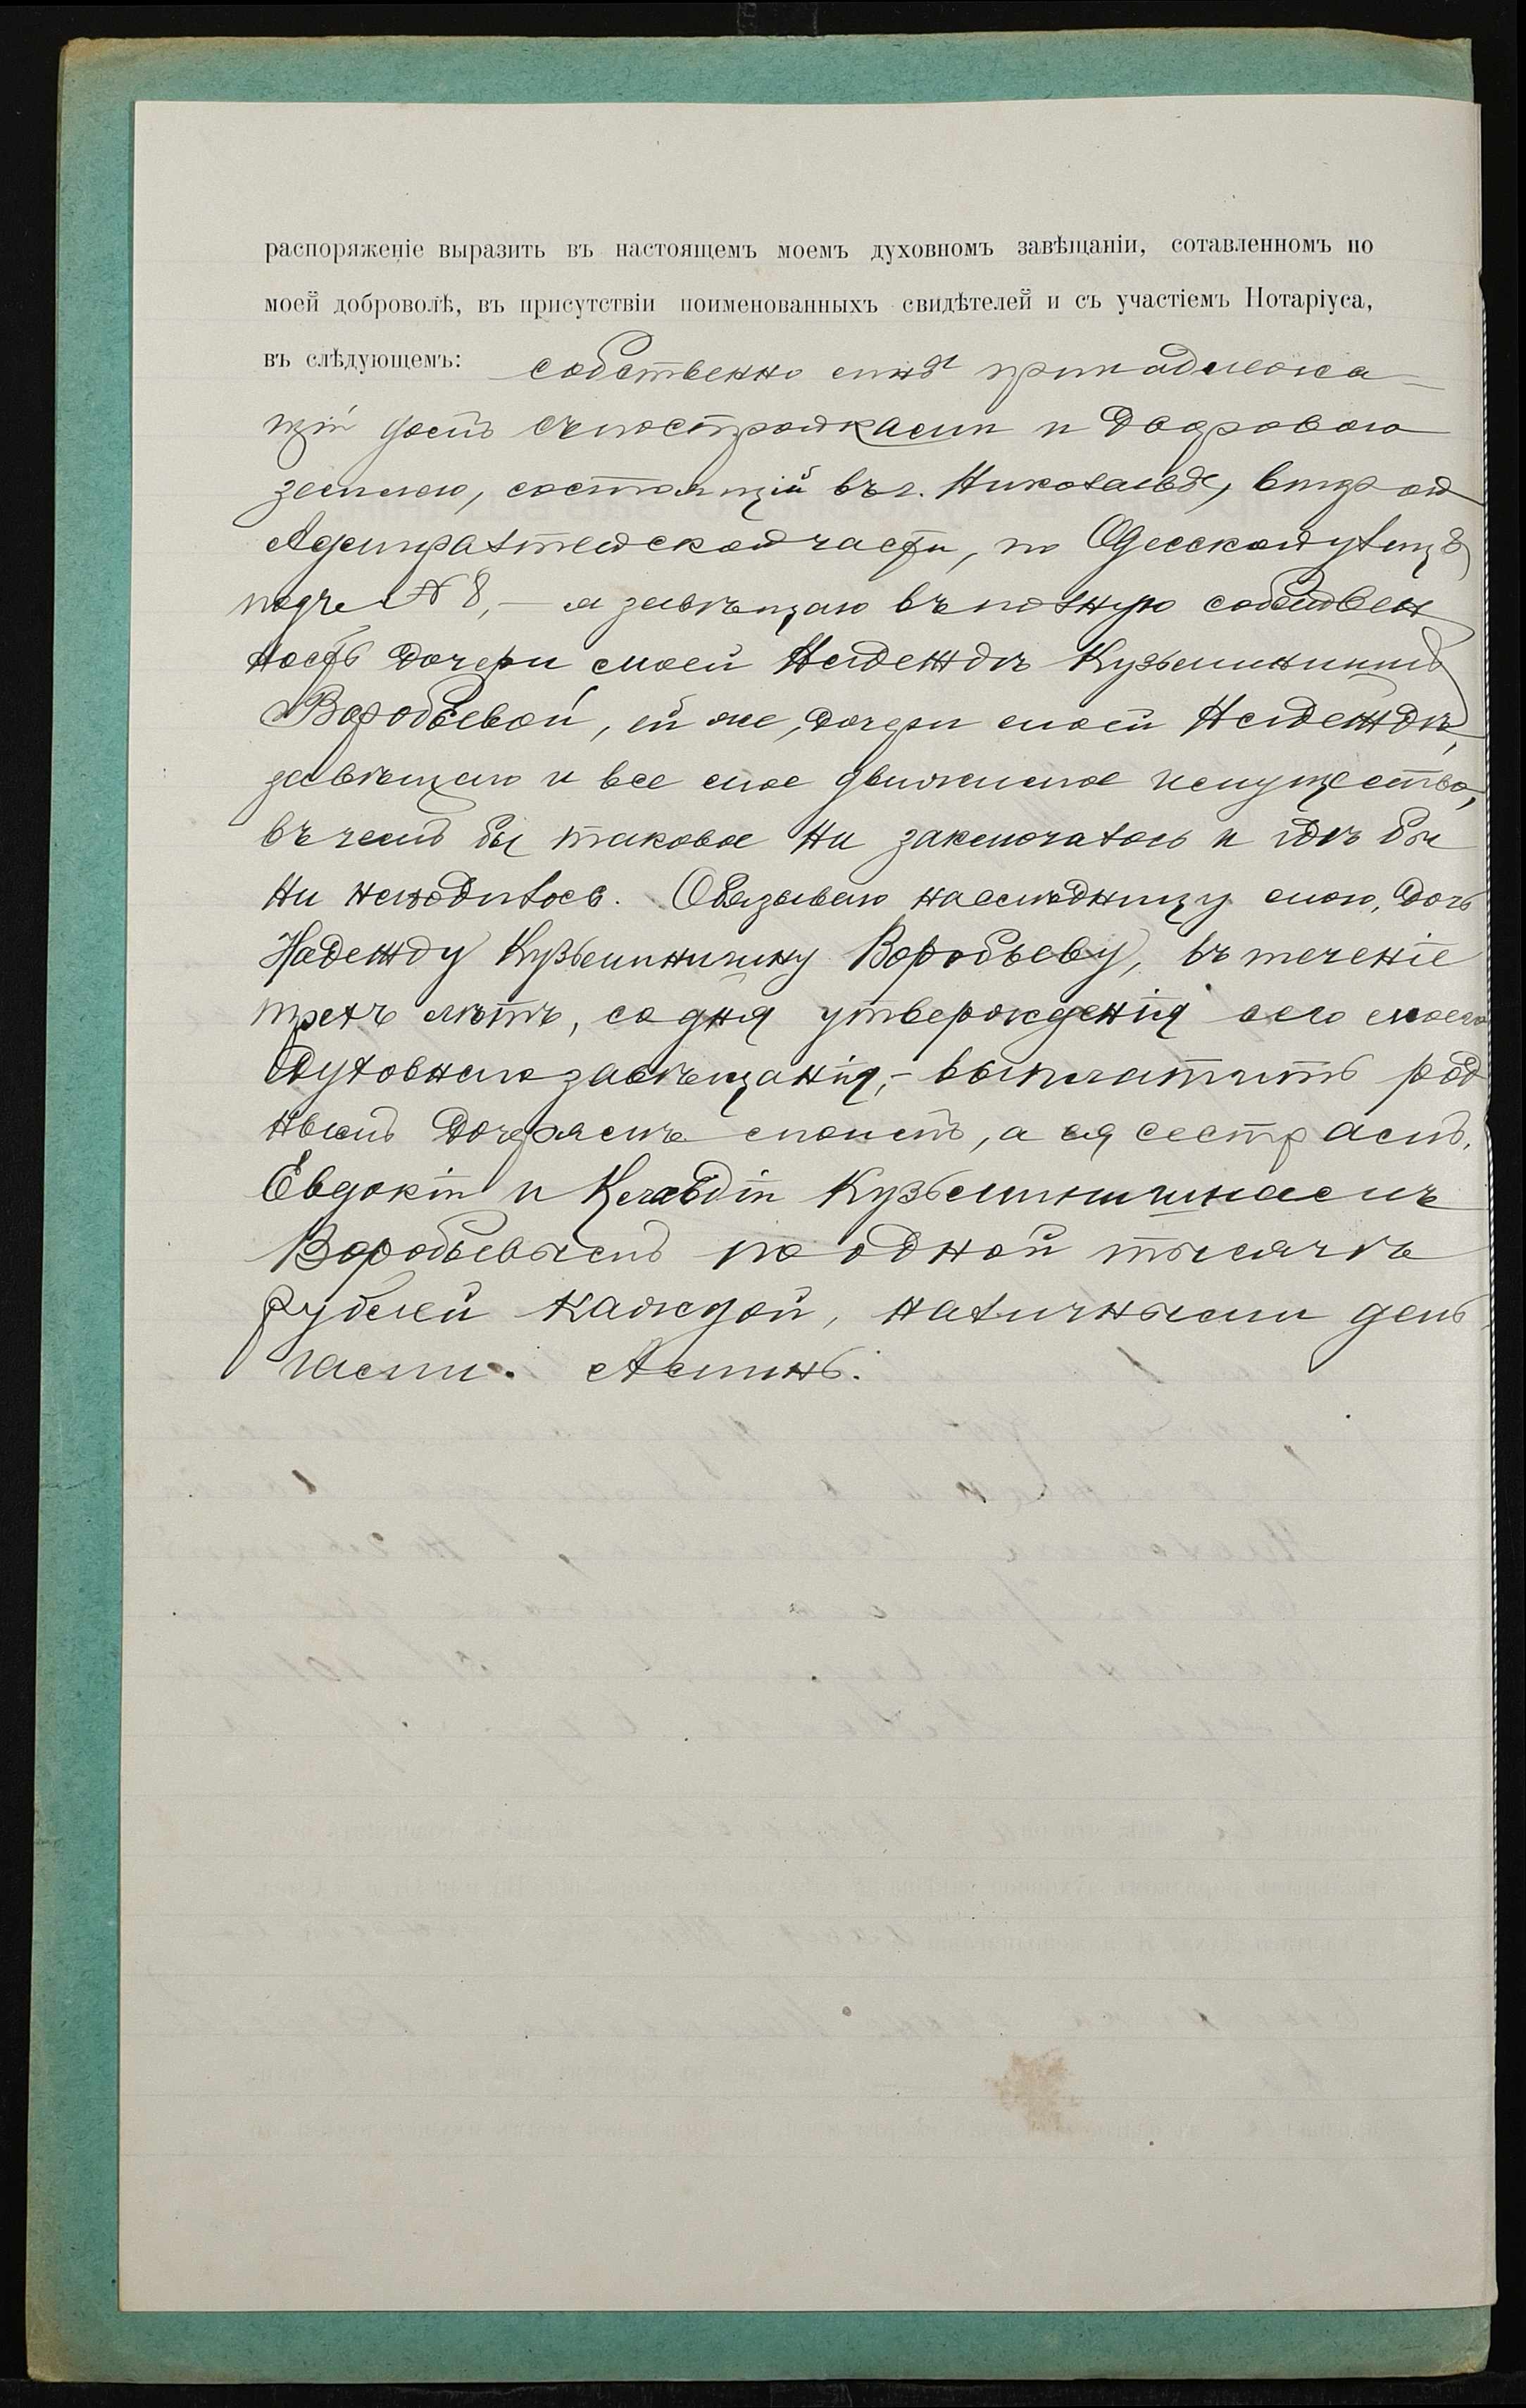 распоряженіе выразить въ настоящемъ моемъ духовномъ завѣщаніи, сотавленномъ по
моей доброволѣ, въ присутствіи поименованныхъ свидѣтелей и съ участіемъ Нотаріуса,
въ слѣдующемъ: собственно мнѣ принадлежа-
щій домъ съ постройками и дворовою
землею, состоящій въ г. Николаевѣ, второй
Адмиралтейской части, по Одесской улицѣ
подъ № 8, — я завѣщаю въ полную собствен
ность дочери моей Надеждѣ Кузьминишнѣ
Воробьевой, ей же, дочери моей Надеждѣ,
завѣщаю и все мое движимое имущество,
въ чемъ бы таковое ни заключалось и гдѣ бы
ни находилось. Обязываю наслѣдницу мою, дочь
Надежду Кузьминишну Воробьеву, въ теченіе
трехъ лѣтъ, со дня утвержденія сего моего
духовнаго завѣщанія, – выплатить род
нымъ дочерямъ моимъ, а ея сестрамъ,
Евдокіи и Клавдіи Кузьминишнамъ
Воробьевымъ по одной тысячѣ
рублей каждой, наличными день
гами. Аминь.